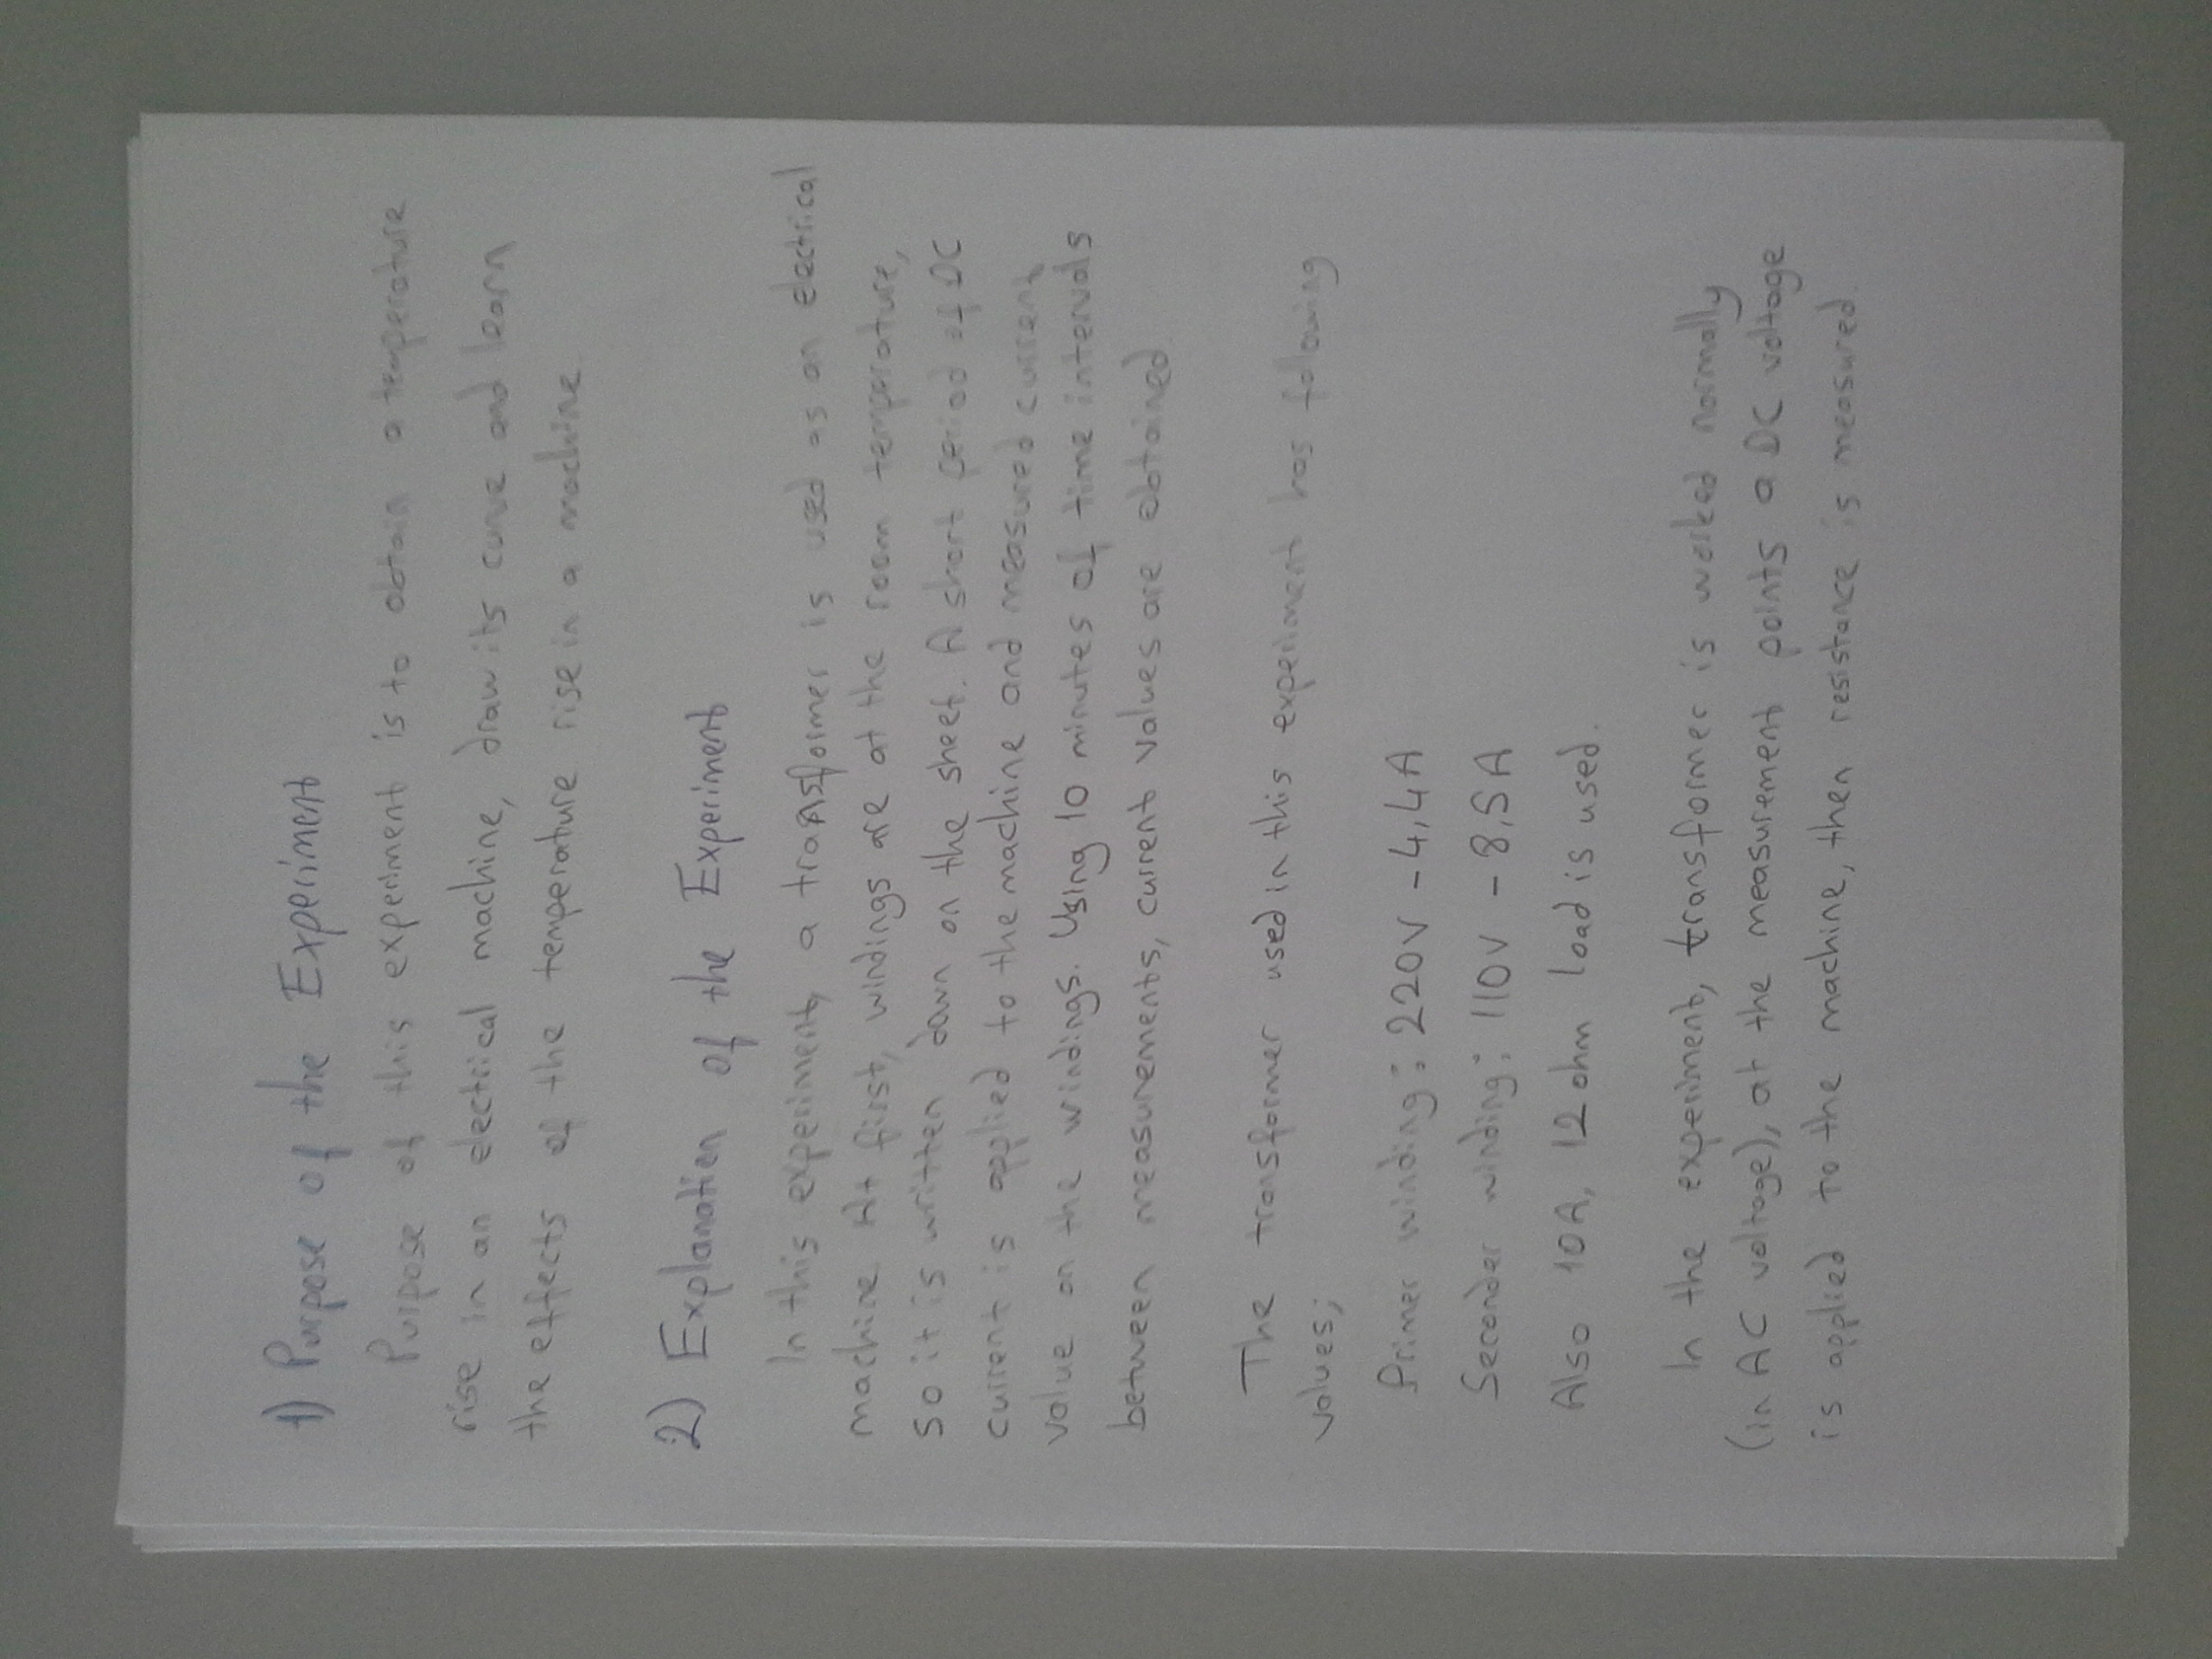 1) Purpose of the Experiment
Purpose of this experiment is to obtain a temperature
rise in an electrical machine, draw its curve and learn
the effects of the temperature rise in a machine.
2) Explanation of the Experiment
In this experiment, a transformer is used as an electrical
machine. At first, windings are at the room temperature,
so it is written down on the sheet. A short period of DC
current is applied to the machine and measured current
value on the windings. Using 10 minutes of time intervals
between measurements, current values are obtained.
The transformer used in this experiment has following
values;
Primer winding: 220V - 4,4A
Seconder winding: 110V - 8,5A
Also 10A, 12 ohm load is used.
In the experiment, transformer is worked normally
(in AC voltage), at the measurement points a DC voltage
is applied to the machine, then resistance is measured.